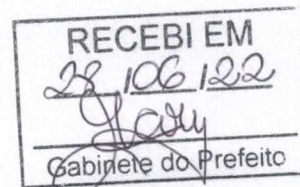 RECEBI EM
28/06/22
Gabinete do Prefeito